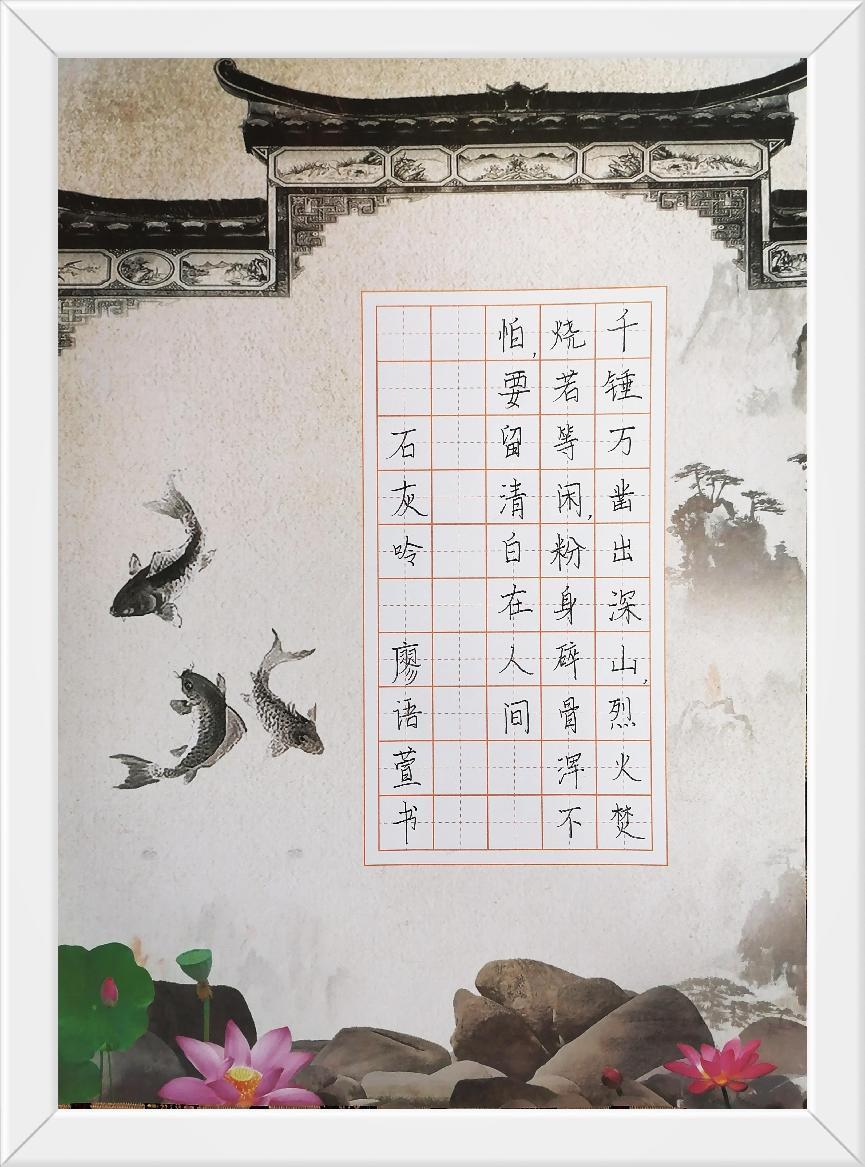 千锤万凿出深山,烈火焚
烧若等闲,粉身碎骨浑不
怕,要留清白在人间
石灰呤 廖语萱书